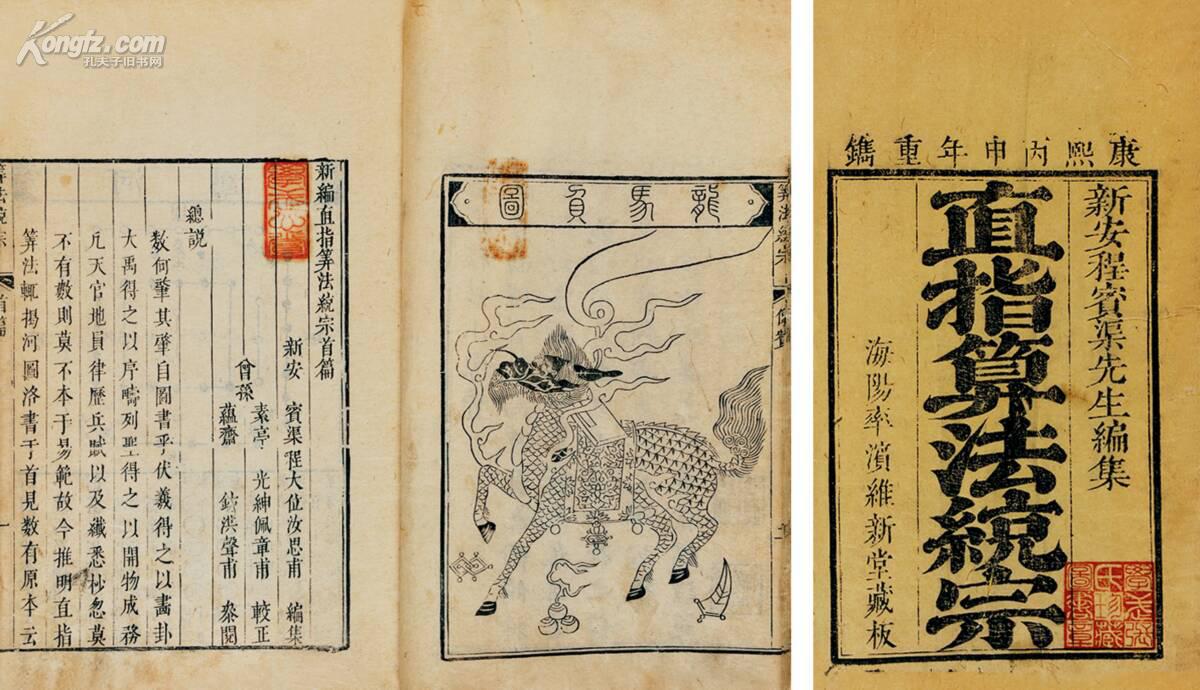 Kongfz.com
孔夫子旧书网
康熙丙申年重鐫
新安程賓渠先生編集
直指算法統宗
海陽率濱維新堂藏板
龍馬負圖
新編直指筭法統宗首篇
新安 賓渠程大位汝思甫 編集
曾孫 素亭 光紳佩章甫 較正
蘊齋 鈁洪聲甫 叅閱
總說
數何肇其肇自圖書乎伏羲得之以畫卦
大禹得之以序疇列聖得之以開物成務
凡天官地員律歷兵賦以及纖悉杪忽莫
不有數則莫不本于易範故今推明直指
筭法輒揭河圖洛書于首見數有原本云
筭法統宗
首篇
一